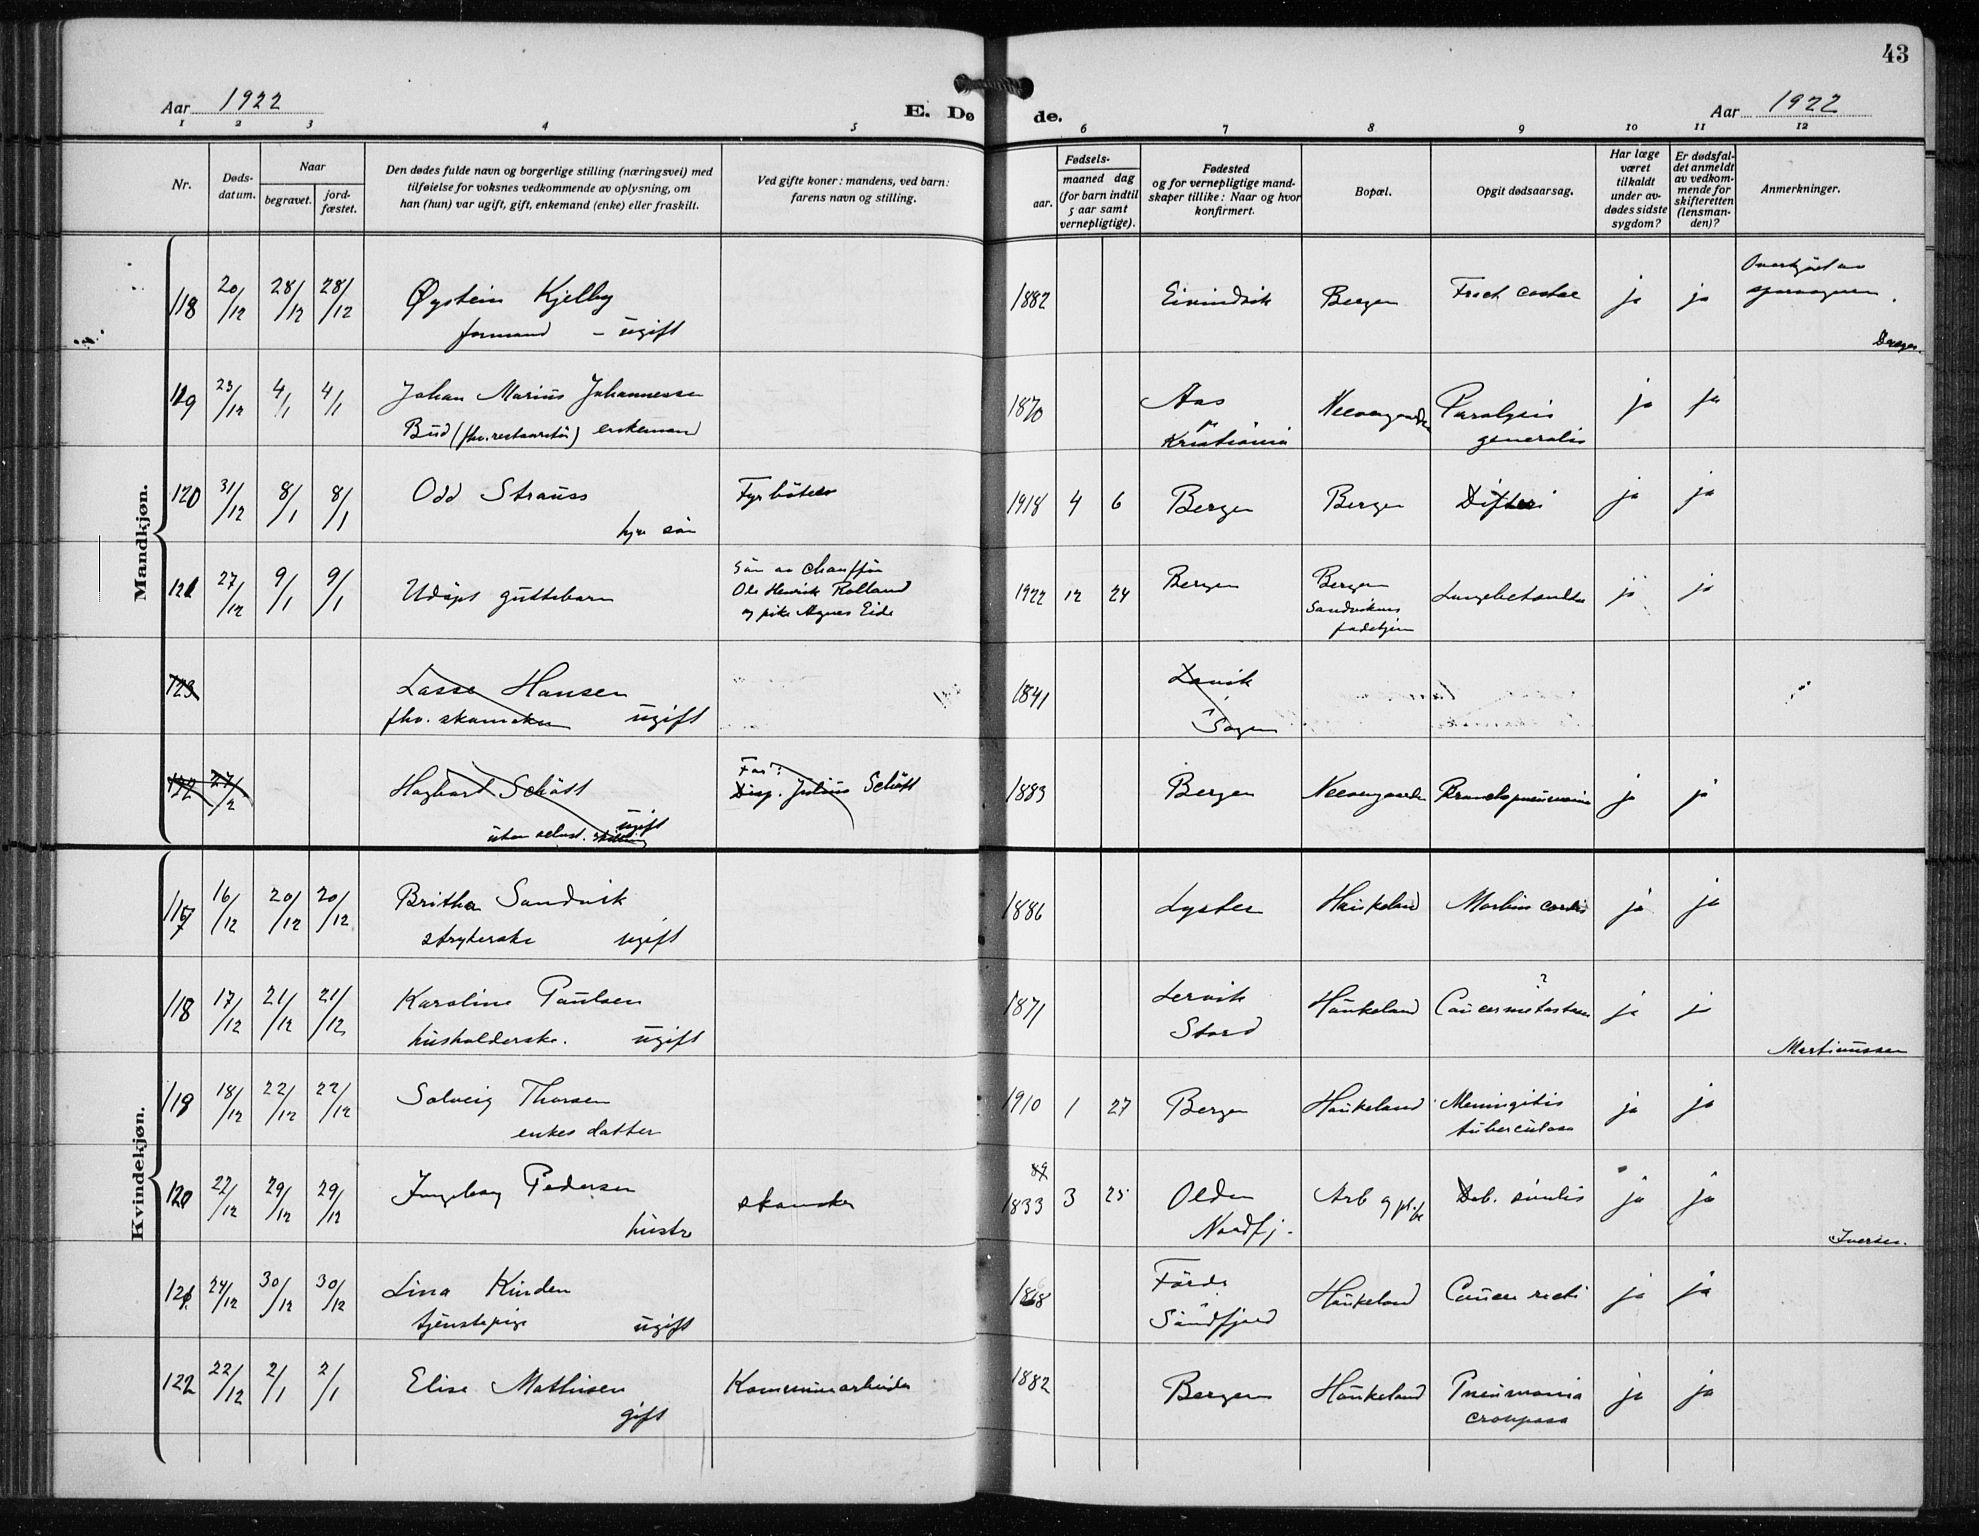 43
Aar 1922
E. Dø de.
Aar 1922
1 2 3 4 5 6 7 8 9 10 11 12
Nr.
Døds-datum.
Naar
begravet.
jord-fæstet.
Den dødes fulde navn og borgerlige stilling (næringsvei) med
tilføielse for voksnes vedkommende av oplysning, om
han (hun) var ugift, gift, enkemand (enke) eller fraskilt.
Ved gifte koner: mandens, ved barn:
farens navn og stilling.
Fødsels-
aar.
maaned dag
(for barn indtil
5 aar samt
vernepligtige).
Fødested
og for vernepligtige mand-
skaper tillike: Naar og hvor
konfirmert.
Bopæl.
Opgit dødsaarsag.
Har læge
været
tilkaldt
under av-
dødes sidste
sygdom?
Er dødsfal-
det anmeldt
av vedkom-
mende for
skifteretten
(lensman-
den)?
Anmerkninger.
Mandkjøn.
118 20/12 28/12 28/12 Øystein Kjelby 1882 Eivindvik Bergen Fract. costae ja ja
formand – ugift
119 23/12 4/1 4/1 Johan Marius Johannessen 1870 Aas Neevengaarden Paralysis ja ja
Bud (fhv. restauratör) enkemand Kristiania generalis
120 31/12 8/1 8/1 Odd Strauss Fyrböter 1918 4 6 Bergen Bergen Difteri ja ja
sön
121 27/12 9/1 9/1 Udöpt guttebarn Sön av chaufför
Ole Henrik Rolland
og pike Agnes Eide
1922 12 24 Bergen Bergen ja ja
Sandvikens
123 Lasse Hansen 1841 Lavik
fhv. skomaker ugift i Sogn
122 27/12 Hagbart Schött Far:
Disp. Julius Schött 1883 Bergen Neevengaarden Bronchopneumonia ja ja
uten selvst. stilling ugift
Kvindekjøn.
117 16/12 20/12 20/12 Britha Sandvik 1886 Lyster Haukeland Morbus cordis ja ja
strykerske ugift
118 17/12 21/12 21/12 Karoline Paulsen 1871 Lervik Haukeland Cancermetastaser ? ja ja
husholderske. ugift Stord
Martinussen
119 18/12 22/12 22/12 Solveig Thorsen 1910 1 27 Bergen Haukeland Meningitis ja ja
enkes datter tuberculosa
120 22/12 29/12 29/12 Ingeborg Pedersen skomaker 1833 3 25 Olden Arb. og pl. Deb. senilis ja ja
hustr Nordfj.
Iversen.
121 24/12 30/12 30/12 Lina Kinden 1868 Förde Haukeland Cancer recti ja ja
tjenestepige ugift Söndfjord
122 22/12 2/1 2/1 Elise Mathisen Kommunearbeider 1882 Bergen Haukeland Pneumonia ja ja
gift crouposa